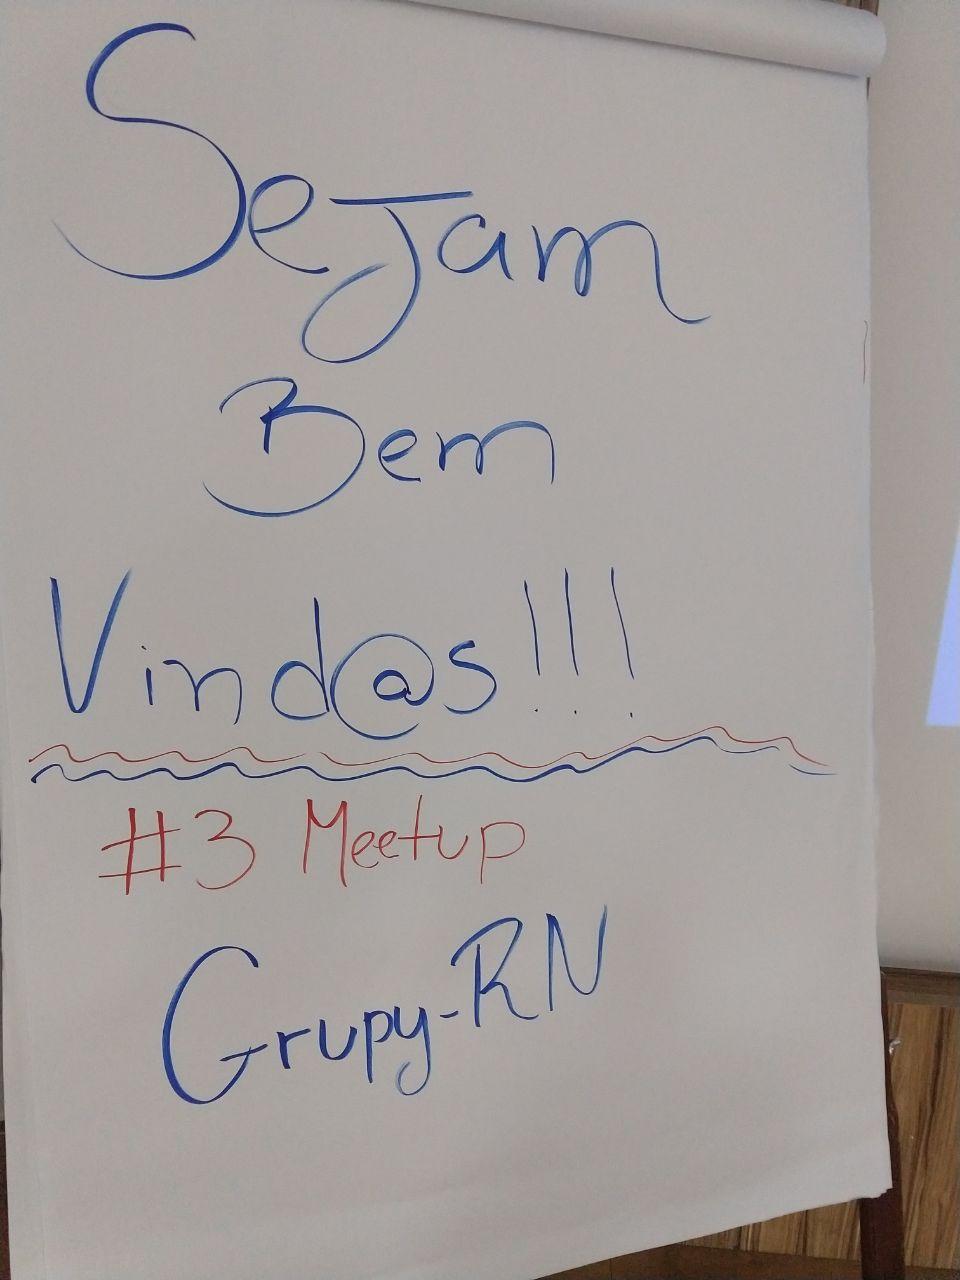 Sejam
Bem
Vind@s!!!
#3 Meetup
Grupy-RN